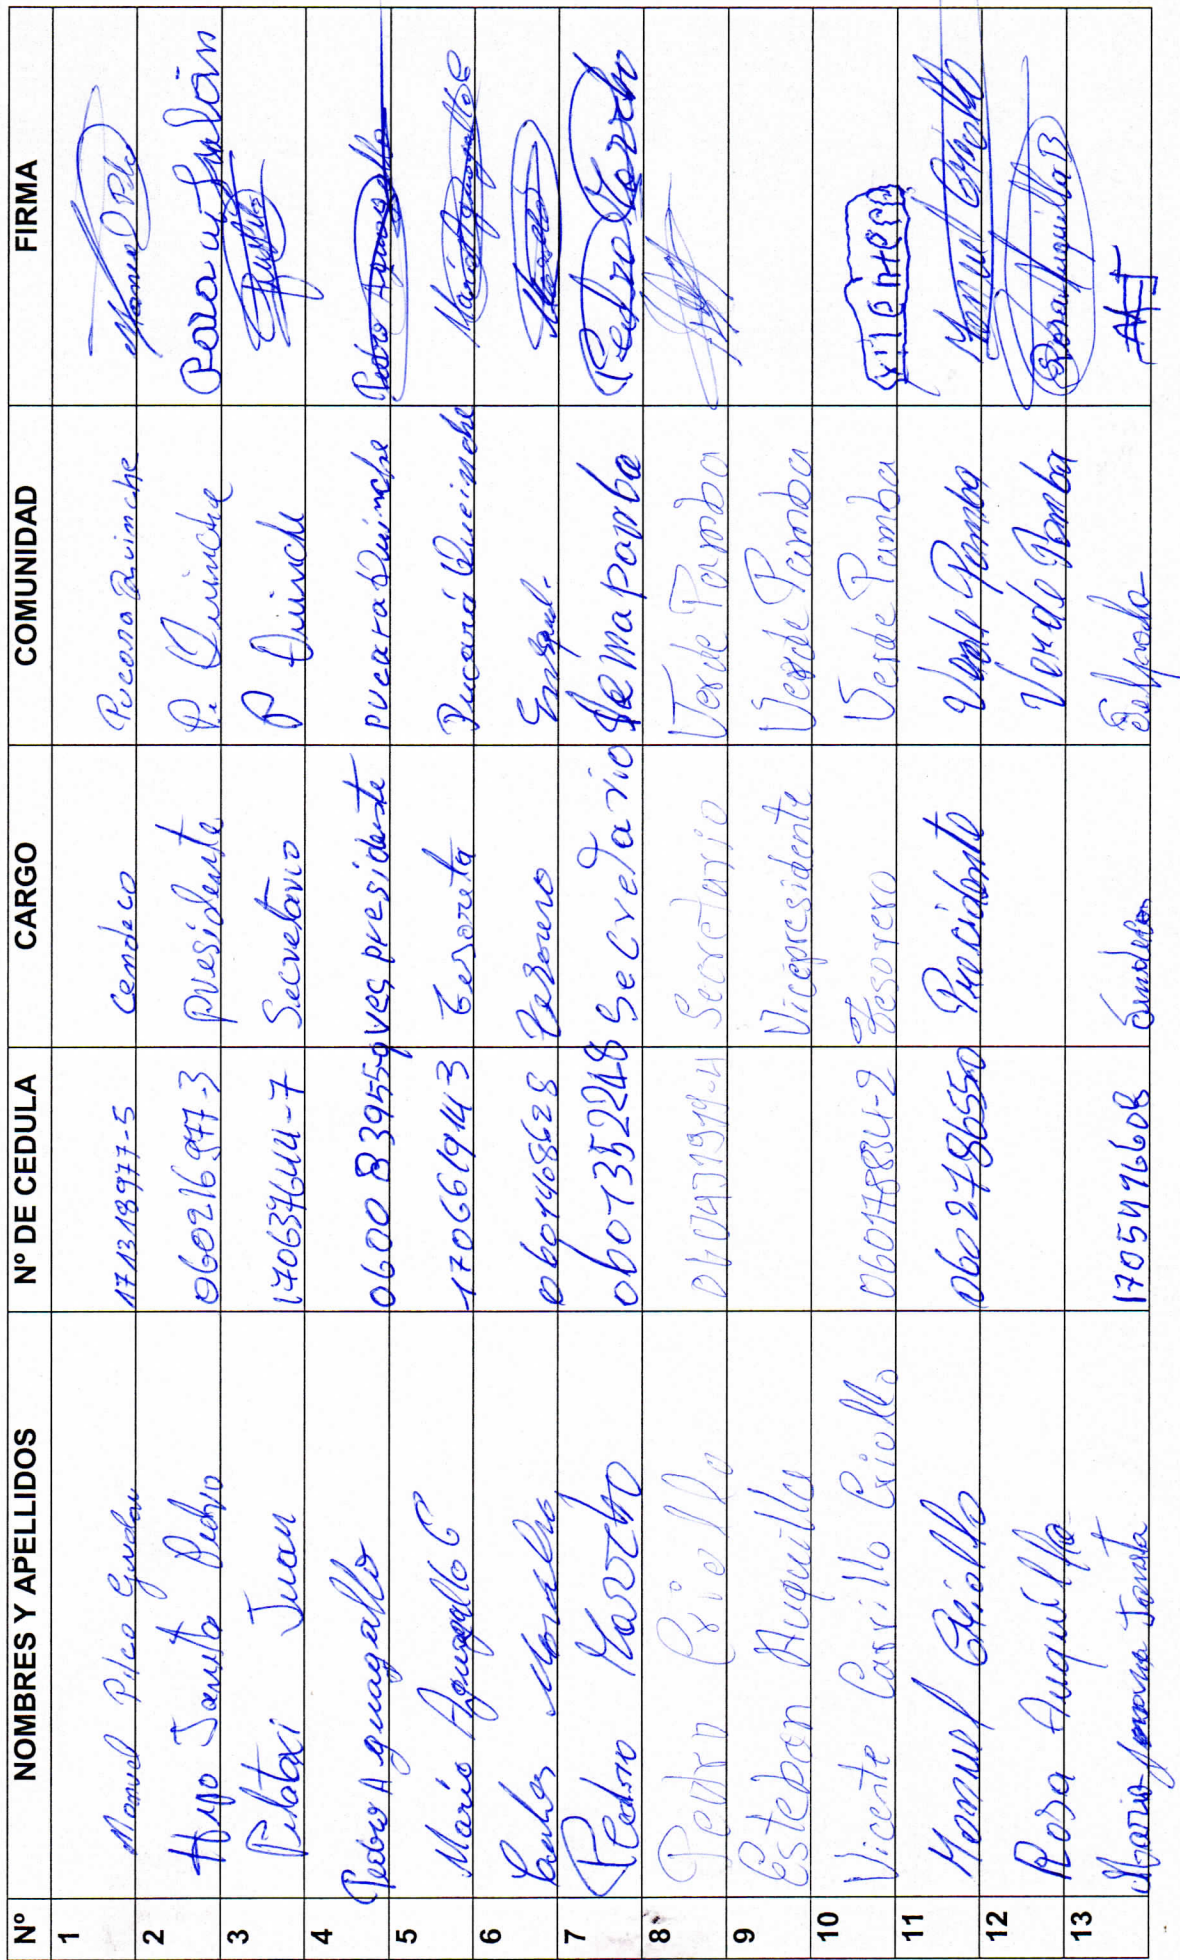 Nº NOMBRES Y APELLIDOS Nº DE CEDULA CARGO COMUNIDAD FIRMA
1 Manuel Pilco 171318977-5 Cendeco Pucara Quinche Manuel Pilco
2 Hipo Janeta Pedro 060216977-3 presidente P. Quinche
3 Pilataxi Juan 170637644-7 Secretario P Quinche
4 Pedro Aguagallo 0600839559 vecpresidente pucara Quinche Pedro Aguagallo
5 Mario Aguagallo C 1706619143 Tesoreta Pucará Queinche Mario Aguagallo C
6 Carlos Morocho 0601468628 Tesorero
7 Pedro Morocho 0601352248 Secretario Pedro Morocho
8 Pedro Criollo Secretario Verde Pamba
9 Esteban Auquilla Vicepresidente Verde Pamba
10 Vicente Carrillo Criollo 060178834-2 Tesorero Verde Pamba
11 Manuel Criollo 0602786550 Precidente Verde Pamba Manuel Criollo
12 Rosa Auquilla Verde Pamba Rosa Auquilla B
13 Maria Janeta 1705496608